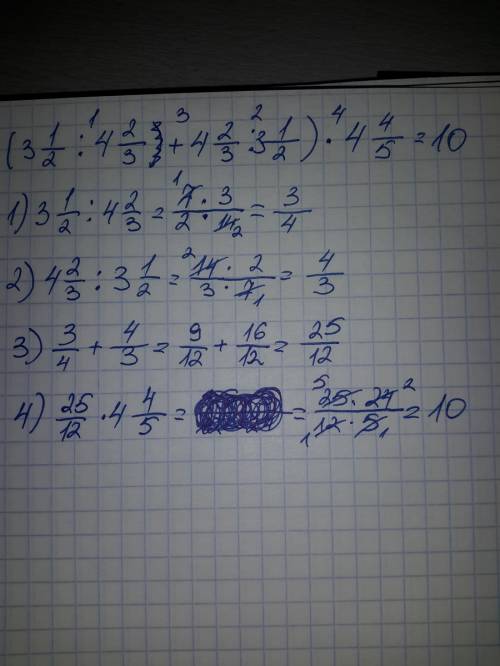 (3 1/2 : 4 2/3 + 4 2/3 : 3 1/2) · 4 4/5 = 10
1) 3 1/2 : 4 2/3 = 7 · 3 / 2 · 14 = 3/4
2) 4 2/3 : 3 1/2 = 14 · 2 / 3 · 7 = 4/3
3) 3/4 + 4/3 = 9/12 + 16/12 = 25/12
4) 25/12 · 4 4/5 = = 25 · 24 / 12 · 5 = 10